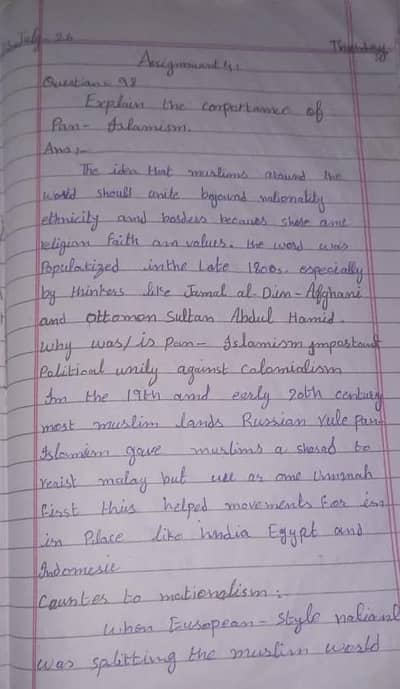 July - 26
Thursday
Assignment 4:
Question:- 98
Explain the comportance of
Pan- Islamism.
Ans:-
The idea that muslims around the
world should unite beyound nationality
ethnicity and borders becaues share ame
religion faith am values. the word was
Popularized inthe Late 1800s. especially
by thinkers like Jamal al-Dim-Afghani
and ottoman Sultan Abdul Hamid.
Why was/is Pan- Islamism impostant
Political unily against colamialism
Im the 19th amd early 20th century
most muslim lands Russian rule pan
Islamism gave muslims a shased to
resist malay but use as one Ummah
fisst this helped movements for
in Place like india Egypt and
Indomesic
Countes to mationalism:
When Eusopean- style national
was splitting the muslim world